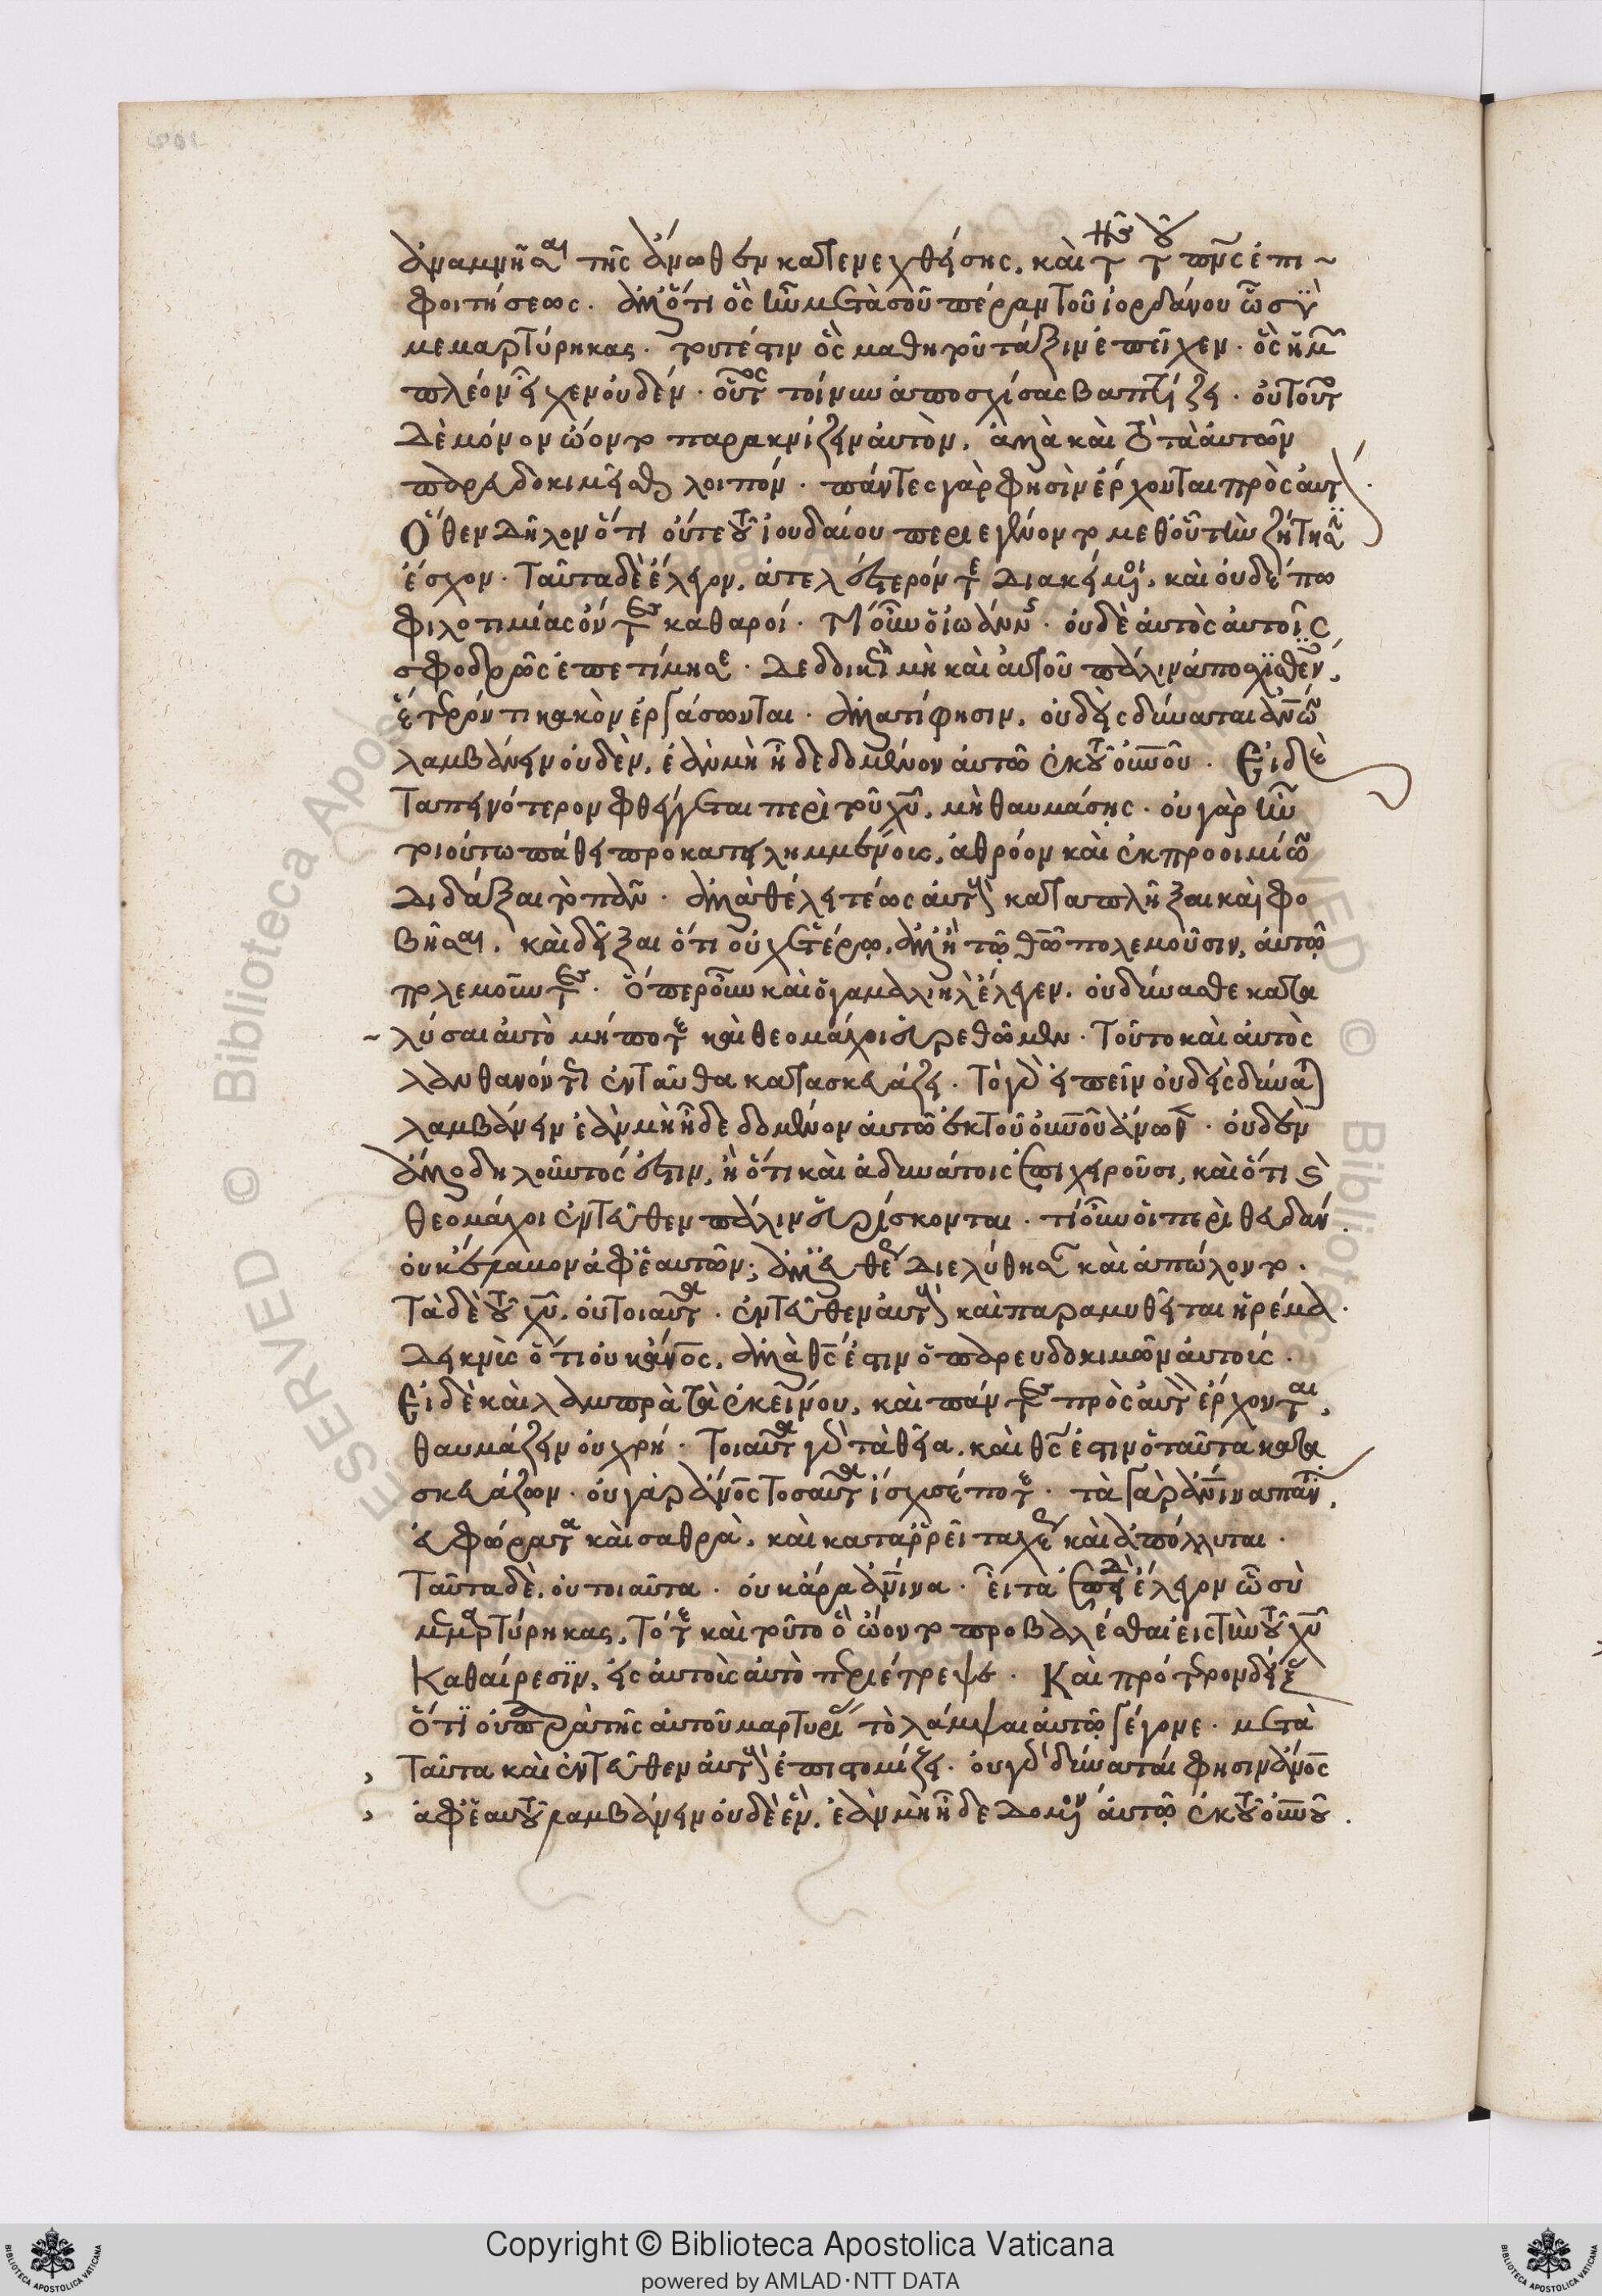 ἀναμνῆσαι τῆς ἄνωθεν κατενεχθείσης, καὶ τῆς τοῦ πν̅ς ἐπι-
φοιτήσεως. ἀλλ' ὅτι ὃς ἦν μετὰ σοῦ πέραν τοῦ ἰορδάνου ᾧ σὺ
μεμαρτύρηκας. τουτέστιν ὃς μαθητοῦ τάξιν ἐπεῖχεν. ὃς ἡμῶν
πλέον εἶχεν οὐδέν. οὗτος τοίνυν ἀποσχίσας βαπτίζει. οὐ τούτω
δὲ μόνον ὤοντο παρακνίζειν αὐτὸν, ἀλλὰ καὶ τῶ τὰ αὐτῶν
παρευδοκιμεῖσθαι λοιπόν. πάντες γὰρ φησὶν ἔρχονται πρὸς αὐτόν.
Ὅθεν δῆλον ὅτι οὔτε τοῦ ἰουδαίου περιεγένοντο μεθ' οὗ τὴν ζήτησιν
ἔσχον. ταῦτα δὲ ἔλεγον, ἀτελέστερόν τε διακείμενοι, καὶ οὐδέπω
φιλοτιμίας ὄντες καθαροί. τί οὖν ὁ ἰωάννης. οὐδὲ αὐτὸς αὐτοῖς
σφοδρῶς ἐπετίμησε. δεδοικὼς μὴ καὶ αὐτοῦ πάλιν ἀποσχισθέντες,
ἕτερόν τι κακὸν ἐργάσωνται. ἀλλὰ τί φησιν, οὐδεὶς δύναται ἄνος
λαμβάνειν οὐδὲν, ἐὰν μὴ ἦ δεδομένον αὐτῶ ἐκ τοῦ οὐνοῦ. Εἰ δὲ
ταπεινότερον φθέγγεται περὶ τοῦ χυ̅, μὴ θαυμάσης. οὐ γὰρ ἦν
τοι οὕτω πάθει προκατειλημμένοις, ἀθρόον καὶ ἐκ προοιμίων
διδάξαι τὸ πᾶν. ἀλλὰ θέλει τέως αὐτοὺς καταπλῆξαι καὶ φο
βῆσαι, καὶ δεῖξαι ὅτι οὐχ ἑτέρω, ἀλλ' ἢ τῶ θω̅ πολεμοῦσιν, αὐτῶ
πολεμοῦντες. ὅπερ οὖν καὶ ὁ γαμαλιὴλ ἔλεγεν. οὐ δύνασθε κατα
λύσαι αὐτὸ μήποτε καὶ θεομάχοι εὑρεθῶμεν. τοῦτο καὶ αὐτὸς
λανθανόντως ἐνταῦθα κατασκευάζει. τὸ γὰρ εἰπεῖν οὐδεὶς δύναται
λαμβάνειν ἐὰν μὴ ἦ δεδομένον αὐτῶ ἐκ τοῦ οὐνοῦ ἄνωθεν. οὐδὲν
ἄλλο δηλοῦντος ἐστιν, ἢ ὅτι καὶ ἀδυνάτοις ἐπιχειροῦσι, καὶ ὅτι καὶ
θεομάχοι ἐντεῦθεν πάλιν εὑρίσκονται. τί οὖν οἱ περὶ θευδᾶν.
οὐκ ἔλαβον ἀφ' ἑαυτῶν; ἀλλ' εὐθέως διελύθησαν καὶ ἀπώλοντο.
τὰ δὲ τοῦ χυ̅, οὐ τοιαῦτα. ἐντεῦθεν αὐτοὺς καὶ παραμυθεῖται ἠρέμα.
δεικνὺς ὅτι οὐκ ἄνος, ἀλλὰ θς̅ ἐστιν ὁ παρευδοκιμῶν αὐτοὺς.
Εἰ δὲ καὶ λαμπρὰ τὰ ἐκείνου, καὶ πάντες πρὸς αὐτὸν ἔρχονται,
θαυμάζειν οὐ χρή. τοιαῦτα γὰρ τὰ θεῖα, καὶ θς̅ ἐστιν ὁ ταῦτα κατα
σκευάζων. οὐ γὰρ ἄνος τοσαῦτα ἴσχυσέ ποτε. τὰ γὰρ ἀνινα πάντα,
εὐφώρατα καὶ σαθρὰ, καὶ καταρρεῖ ταχέως καὶ ἀπόλλυται.
ταῦτα δὲ, οὐ τοιαῦτα. οὐκ ἄρα ἀνινα. εἶτα ἐπειδὴ ἔλεγον ὦ σὺ
μεμαρτύρηκας, τότε καὶ τοῦτο ὃ ὤοντο προβαλέσθαι εἰς τὴν τοῦ χυ̅
καθαίρεσιν, εἰς αὐτοὺς αὐτὸ περιέτρεψε. Καὶ πρότερον δείξας
ὅτι οὐ παρὰ τῆς αὐτοῦ μαρτυρίας τὸ λάμψαι αὐτῶ γέγονε. μετὰ
ταῦτα καὶ ἐντεῦθεν αὐτοὺς ἐπιστομίζει. οὐ γὰρ δύναται φησιν ἄνος
ἀφ' ἑαυτοῦ λαμβάνειν οὐδὲ ἓν, ἐὰν μὴ ἦ δεδομένον αὐτῶ ἐκ τοῦ οὐνοῦ.
Copyright © Biblioteca Apostolica Vaticana
powered by AMLAD·NTT DATA